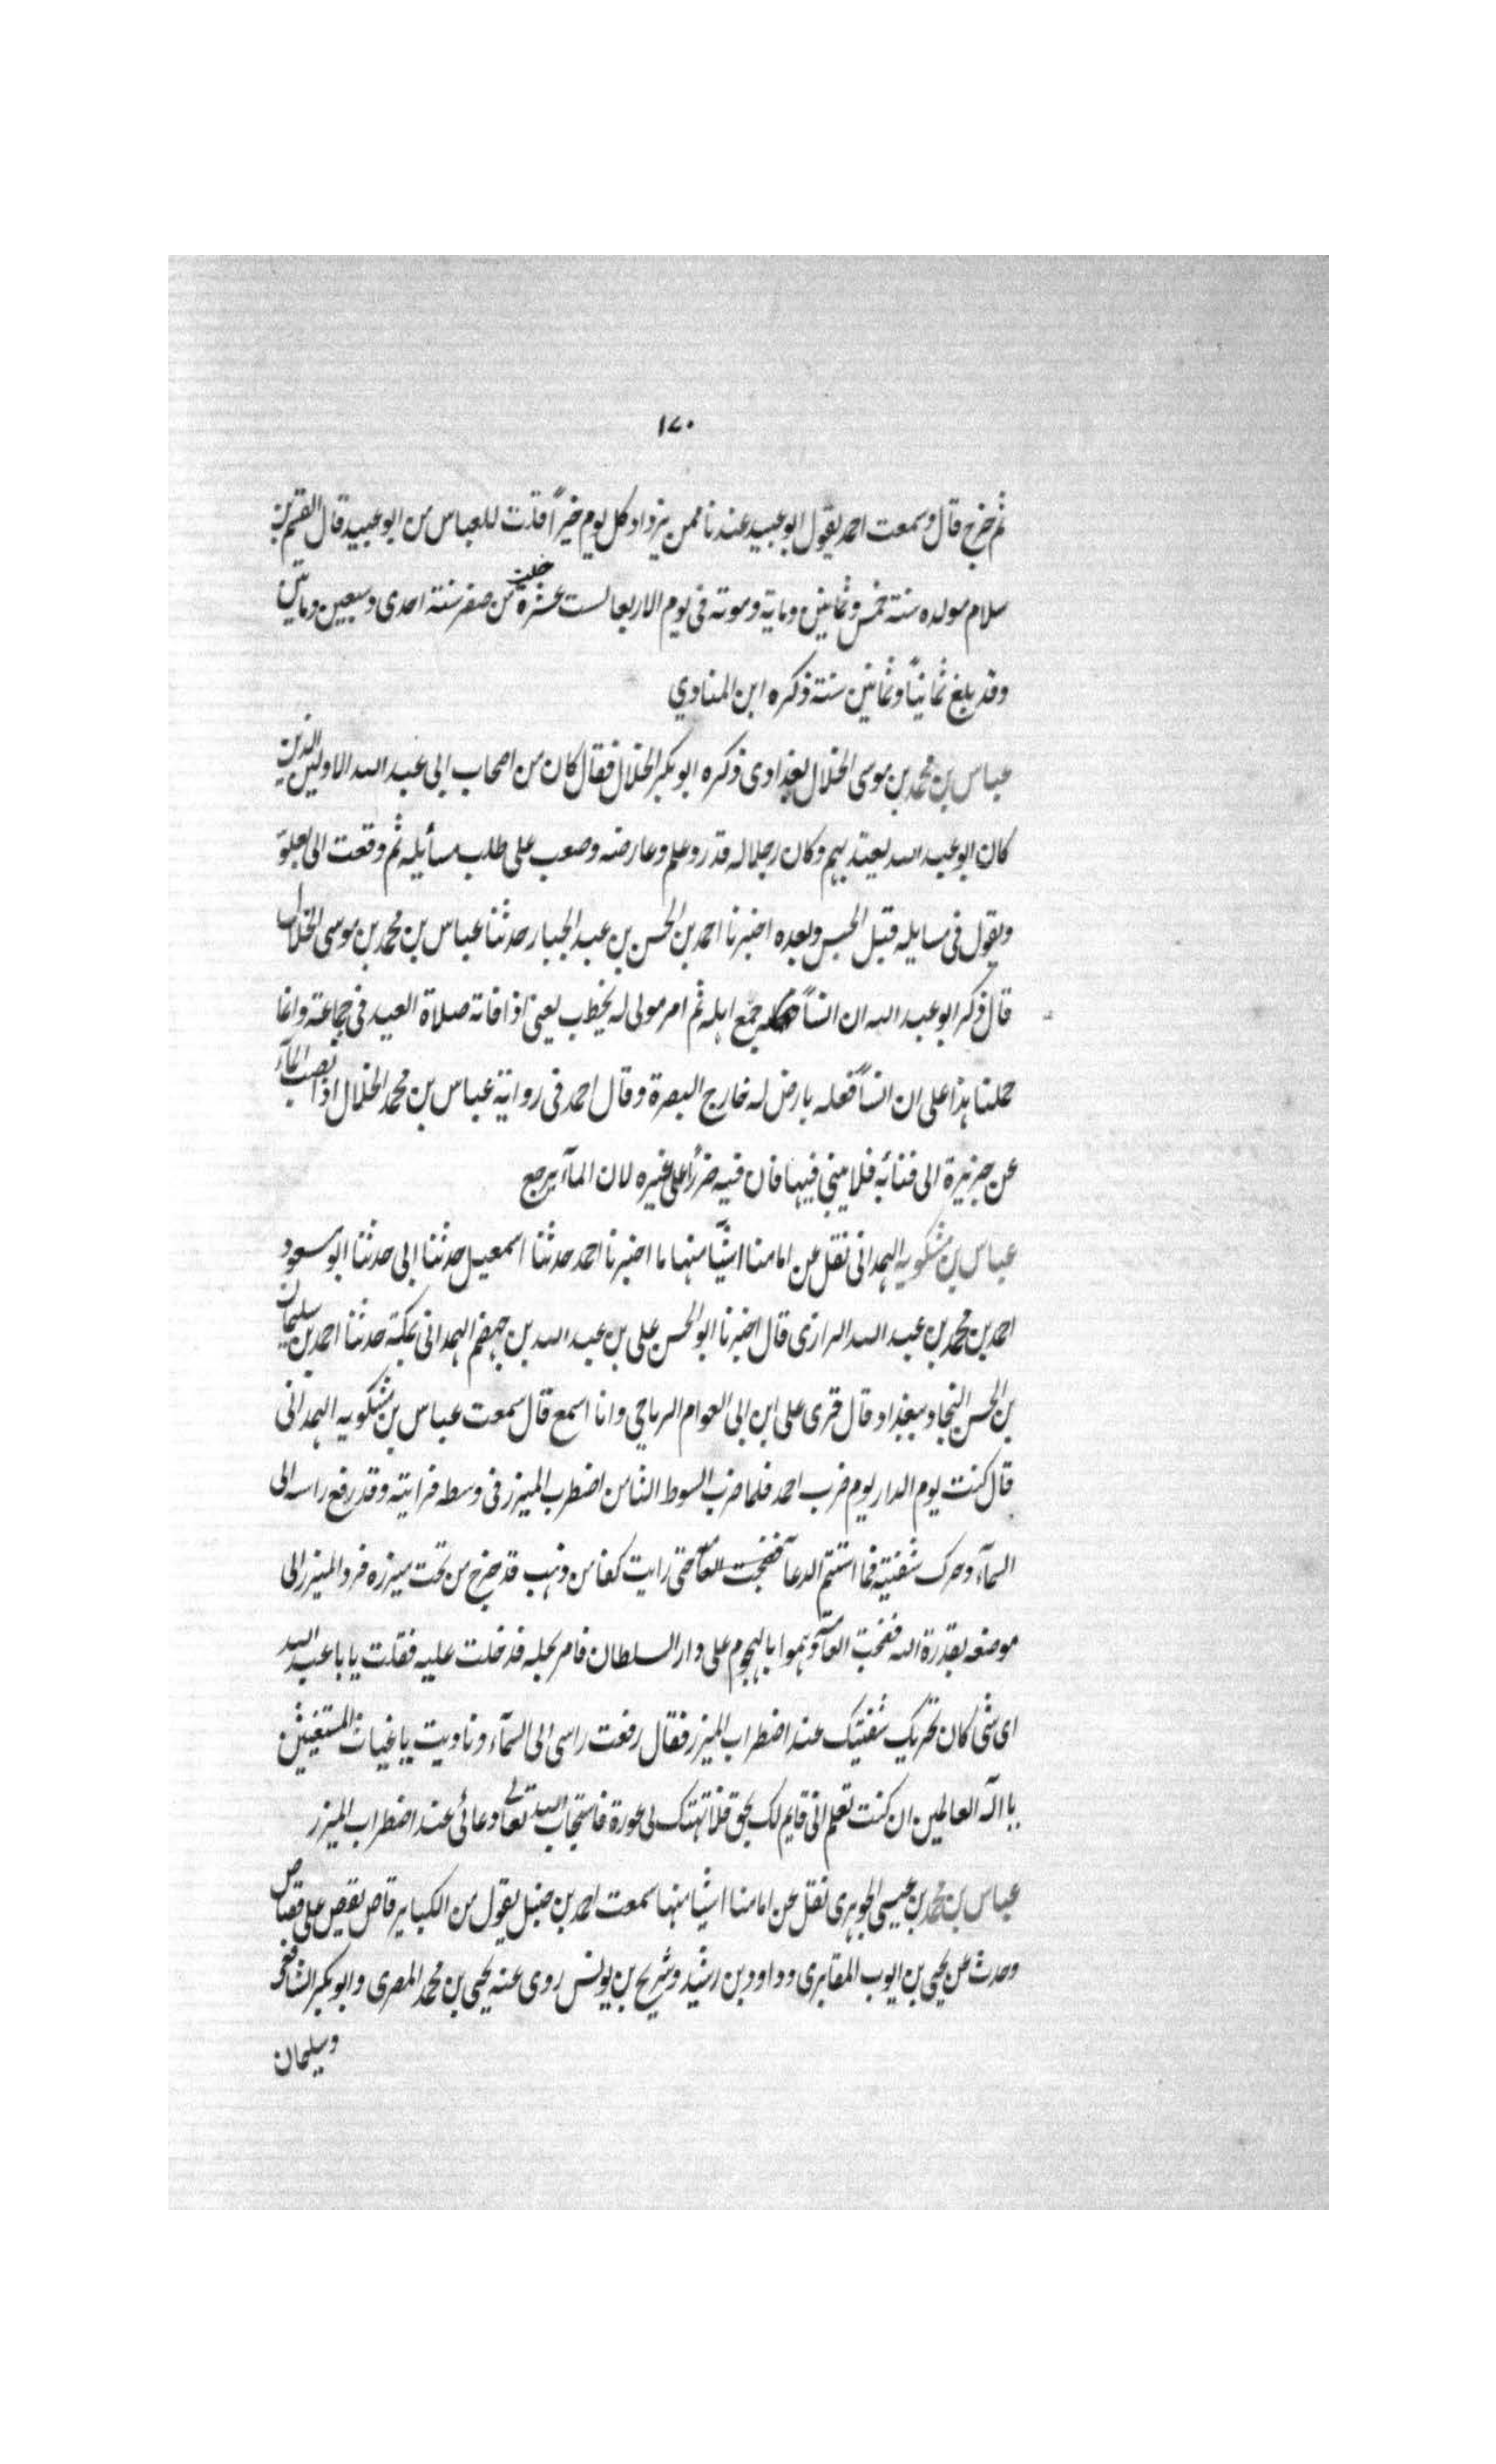 ١٧٠
ثم خرج قال وسمعت احمد يقول ابو عبيد عندنا ممن يزداد كل يوم خيراً قلت للعباس من ابو عبيد قال القسم بن
سلام مولده سنة خمس وثمانين وماية وموته فى يوم الاربعا لست عشرة خلت من صفر سنة احدى وسبعين وماتين
وقد بلغ ثمانياً وثمانين سنة ذكره ابن المناوي
عباس بن محمد بن موسى الخلال بغدادى ذكره ابو بكر الخلال فقال كان من اصحاب ابى عبد الله الاولين الذين
كان ابو عبد الله يعتد بهم وكان رجلا له قدر وعلم وعارضه وصعب على طلب مسأيله ثم وقعت الى بعلو
ويقول فى مسايله قبل الحبس وبعده اخبرنا احمد بن الحسن بن عبد الجبار حدثنا عباس بن محمد بن موسى الخلال
قال ذكر ابو عبد الله ان انساً جمع اهله ثم امر مولى له يخطب يعنى اذا فاتة صلاة العيد فى جماعة وانما
حملنا هذا على ان انساً فعله بارض له خارج البصرة وقال احمد فى رواية عباس بن محمد الخلال اذا نصب المآء
عن جزيرة الى فنائه فلا يبنى فيها فان فيه ضرراً على غيره لان المآء يرجع
عباس بن مشكويه الهمدانى نقل عن امامنا اشيآ منها ما اخبرنا احمد حدثنا اسمعيل حدثنا ابى حدثنا ابو مسعود
احمد بن محمد بن عبد الله الرازى قال اخبرنا ابو الحسن على بن عبد الله بن جهضم الهمدانى بمكة حدثنا احمد بن سليمان
بن الحسن النجاد ببغداد قال قرى على ابن ابى العوام الرياحى وانا اسمع قال سمعت عباس بن مشكويه الهمدانى
قال كنت يوم الدار يوم ضرب احمد فلما ضرب السوط الثامن اضطرب الميزر فى وسطه فرايته وقد رفع راسه الى
السمآء وحرك شفتيه فما استتم الدعآ حتى رايت كفا من ذهب قد خرج من تحت ميزره فرد الميزر الى
موضعه بقدرة الله فضجت العآمة وهموا بالهجوم على دار السلطان فامر بحله فدخلت عليه فقلت يا با عبد الله
اى شى كان تحريك شفتيك عند اضطراب الميزر فقال رفعت راسى الى السمآء وناديت يا غياث المستغيثين
يا اله العالمين ان كنت تعلم انى قايم لك بحق فلا تهتك لى عورة فاستجاب الله تعالى دعائى عند اضطراب الميزر
عباس بن محمد بن عيسى الجوهرى نقل عن امامنا اشيا منها سمعت احمد بن حنبل يقول من الكباير قاص يقص على قصاص
وحدث عن يحيى بن ايوب المقابرى وداود بن رشيد وشريح بن يونس روى عنه يحيى بن محمد المصرى وابو بكر الشافعى
وسليمان